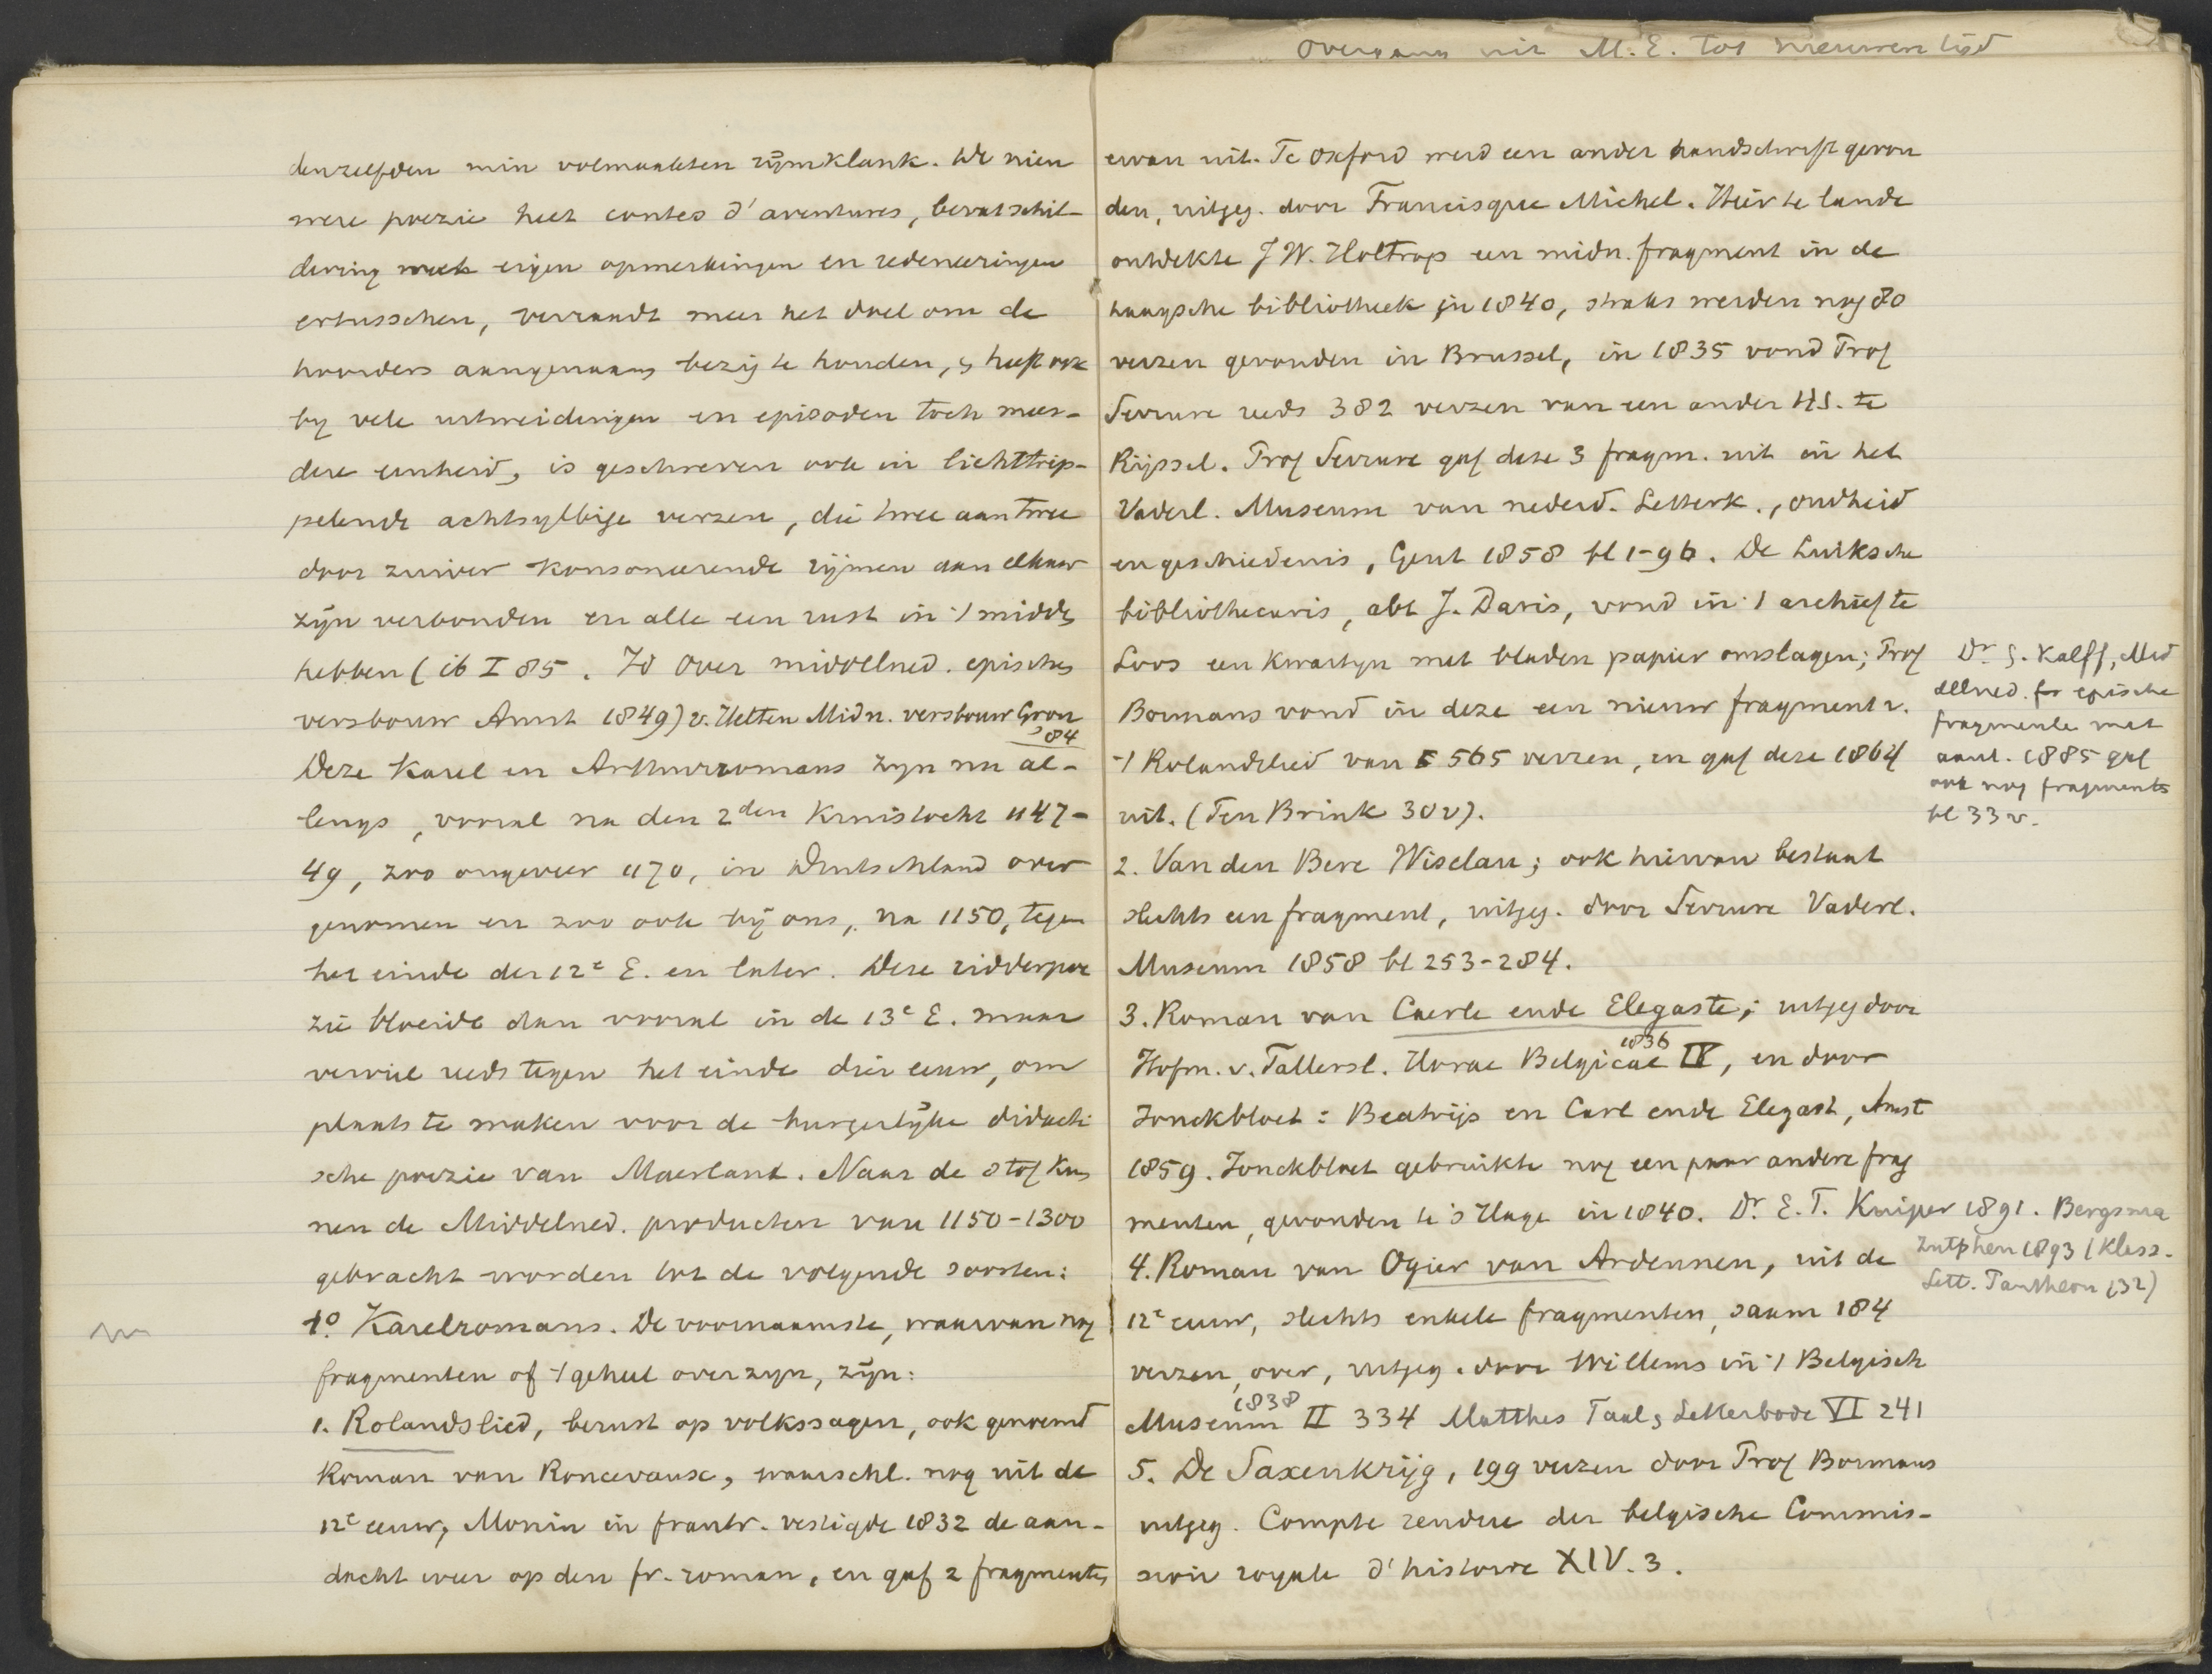 Overgang uit M.E. tot nieuwen tijd
denzelfden min volmaakten rijmklank. De nieu
were poezie heet contes d'aventures, bevat schil-
dering eigen opmerkingen en redeneeringen
ertusschen, verraadt meer het doel om de
hoorders aangenaam bezig te houden, heeft ook
by vele uitweidingen en episoden toch meer-
dere eenheid, is geschreven ook in lichttrip-
pelende achtsylbige verzen, die twee aan twee
door zuiver konsoneerende rijmen aan elkaar
zijn verbonden en alle een rust in 't midd
hebben (ib I 85. Id over middelned. epische
versbouw Amst 1849) v. Helten Midn. versbouw Gron
84
Deze Karel en Arthurromans zyn nu al-
lengs, vooral na den 2den Kruistocht 1147-
49, zoo ongeveer 1170, in Duitschland over
genomen en zoo ook bij ons, na 1150, tegen
het einde der 12e E. en later. Deze ridderpoe
zie bloeide dan vooral in de 13e E. maar
verviel reeds tegen het einde dier eeuw, om
plaats te maken voor de burgerlijke didacti
sche poezie van Maerlant. Naar de stof kun
nen de Middelned. producten van 1150-1300
gebracht worden tot de volgende soorten:
1o. Karelromans. De voornaamste, waarvan nog
fragmenten of 't geheel over zyn, zijn:
1. Rolandslied, berust op volkssagen, ook genoemd
Roman van Roncevaux, waarschl. nog uit de
12e eeuw, Monin in frankr. vestigde 1832 de aan-
dacht weer op den fr. roman, en gaf 2 fragmenten
ervan uit. Te Oxford werd een ander handschrift gevon
den, uitgeg. door Francisque Michel. Hier te lande
ontdekte J W. Holtrop een midn. fragment in de
haagsche bibliotheek in 1840, straks werden nog 80
verzen gevonden in Brussel, in 1835 vond Prof
Serrure reeds 382 verzen van een ander HS. te
Rijssel. Prof Serrure gaf deze 3 fragm. uit in het
Vaderl. Museum van nederd. Letterk., oudheid
en geschiedenis, Gent 1858 bl 1-96. De Luiksche
bibliothecaris, abt J. Daris, vond in 't archief te
Loos een kwartyn met bladen papier omslagen; Prof
Bormans vond in deze een nieuw fragment v.
't Rolandslied van 565 verzen, en gaf deze 1864
uit. (Ten Brink 30v).
Dr G. Kalff, Mid
dellned. epische
fragmente met
aant. 1885 gaf
ook nog fragmenten
bl 33 v.
2. Van den Bere Wiselau; ook hiervan bestaat
slechts een fragment, uitgeg. door Serrure Vaderl.
Museum 1858 bl 253-284.
3. Roman van Caerle ende Elegaste; uitgeg door
Hofm. v. Fallersl. Horae Belgicae IV, en door
1836
Jonckbloet: Beatrijs en Carl ende Elegast, Amst
1859. Jonckbloet gebruikte nog een paar andere frag
menten, gevonden te 's Hage in 1840. Dr. E. T. Kuiper 1891. Bergsma
Zutphen 1893 (Klass.
Lett. Pantheon 132)
4. Roman van Ogier van Ardennen, uit de
12e eeuw, slechts enkele fragmenten, saam 184
verzen, over, uitgeg. door Willems in 't Belgisch
1838
Museum II 334 Matthes Taal, Letterbode VI 241
5. De Saxenkrijg, 199 verzen door Prof Bormans
uitgeg. Compte rendue der belgische Commis-
sion royale d'histoire XIV. 3.